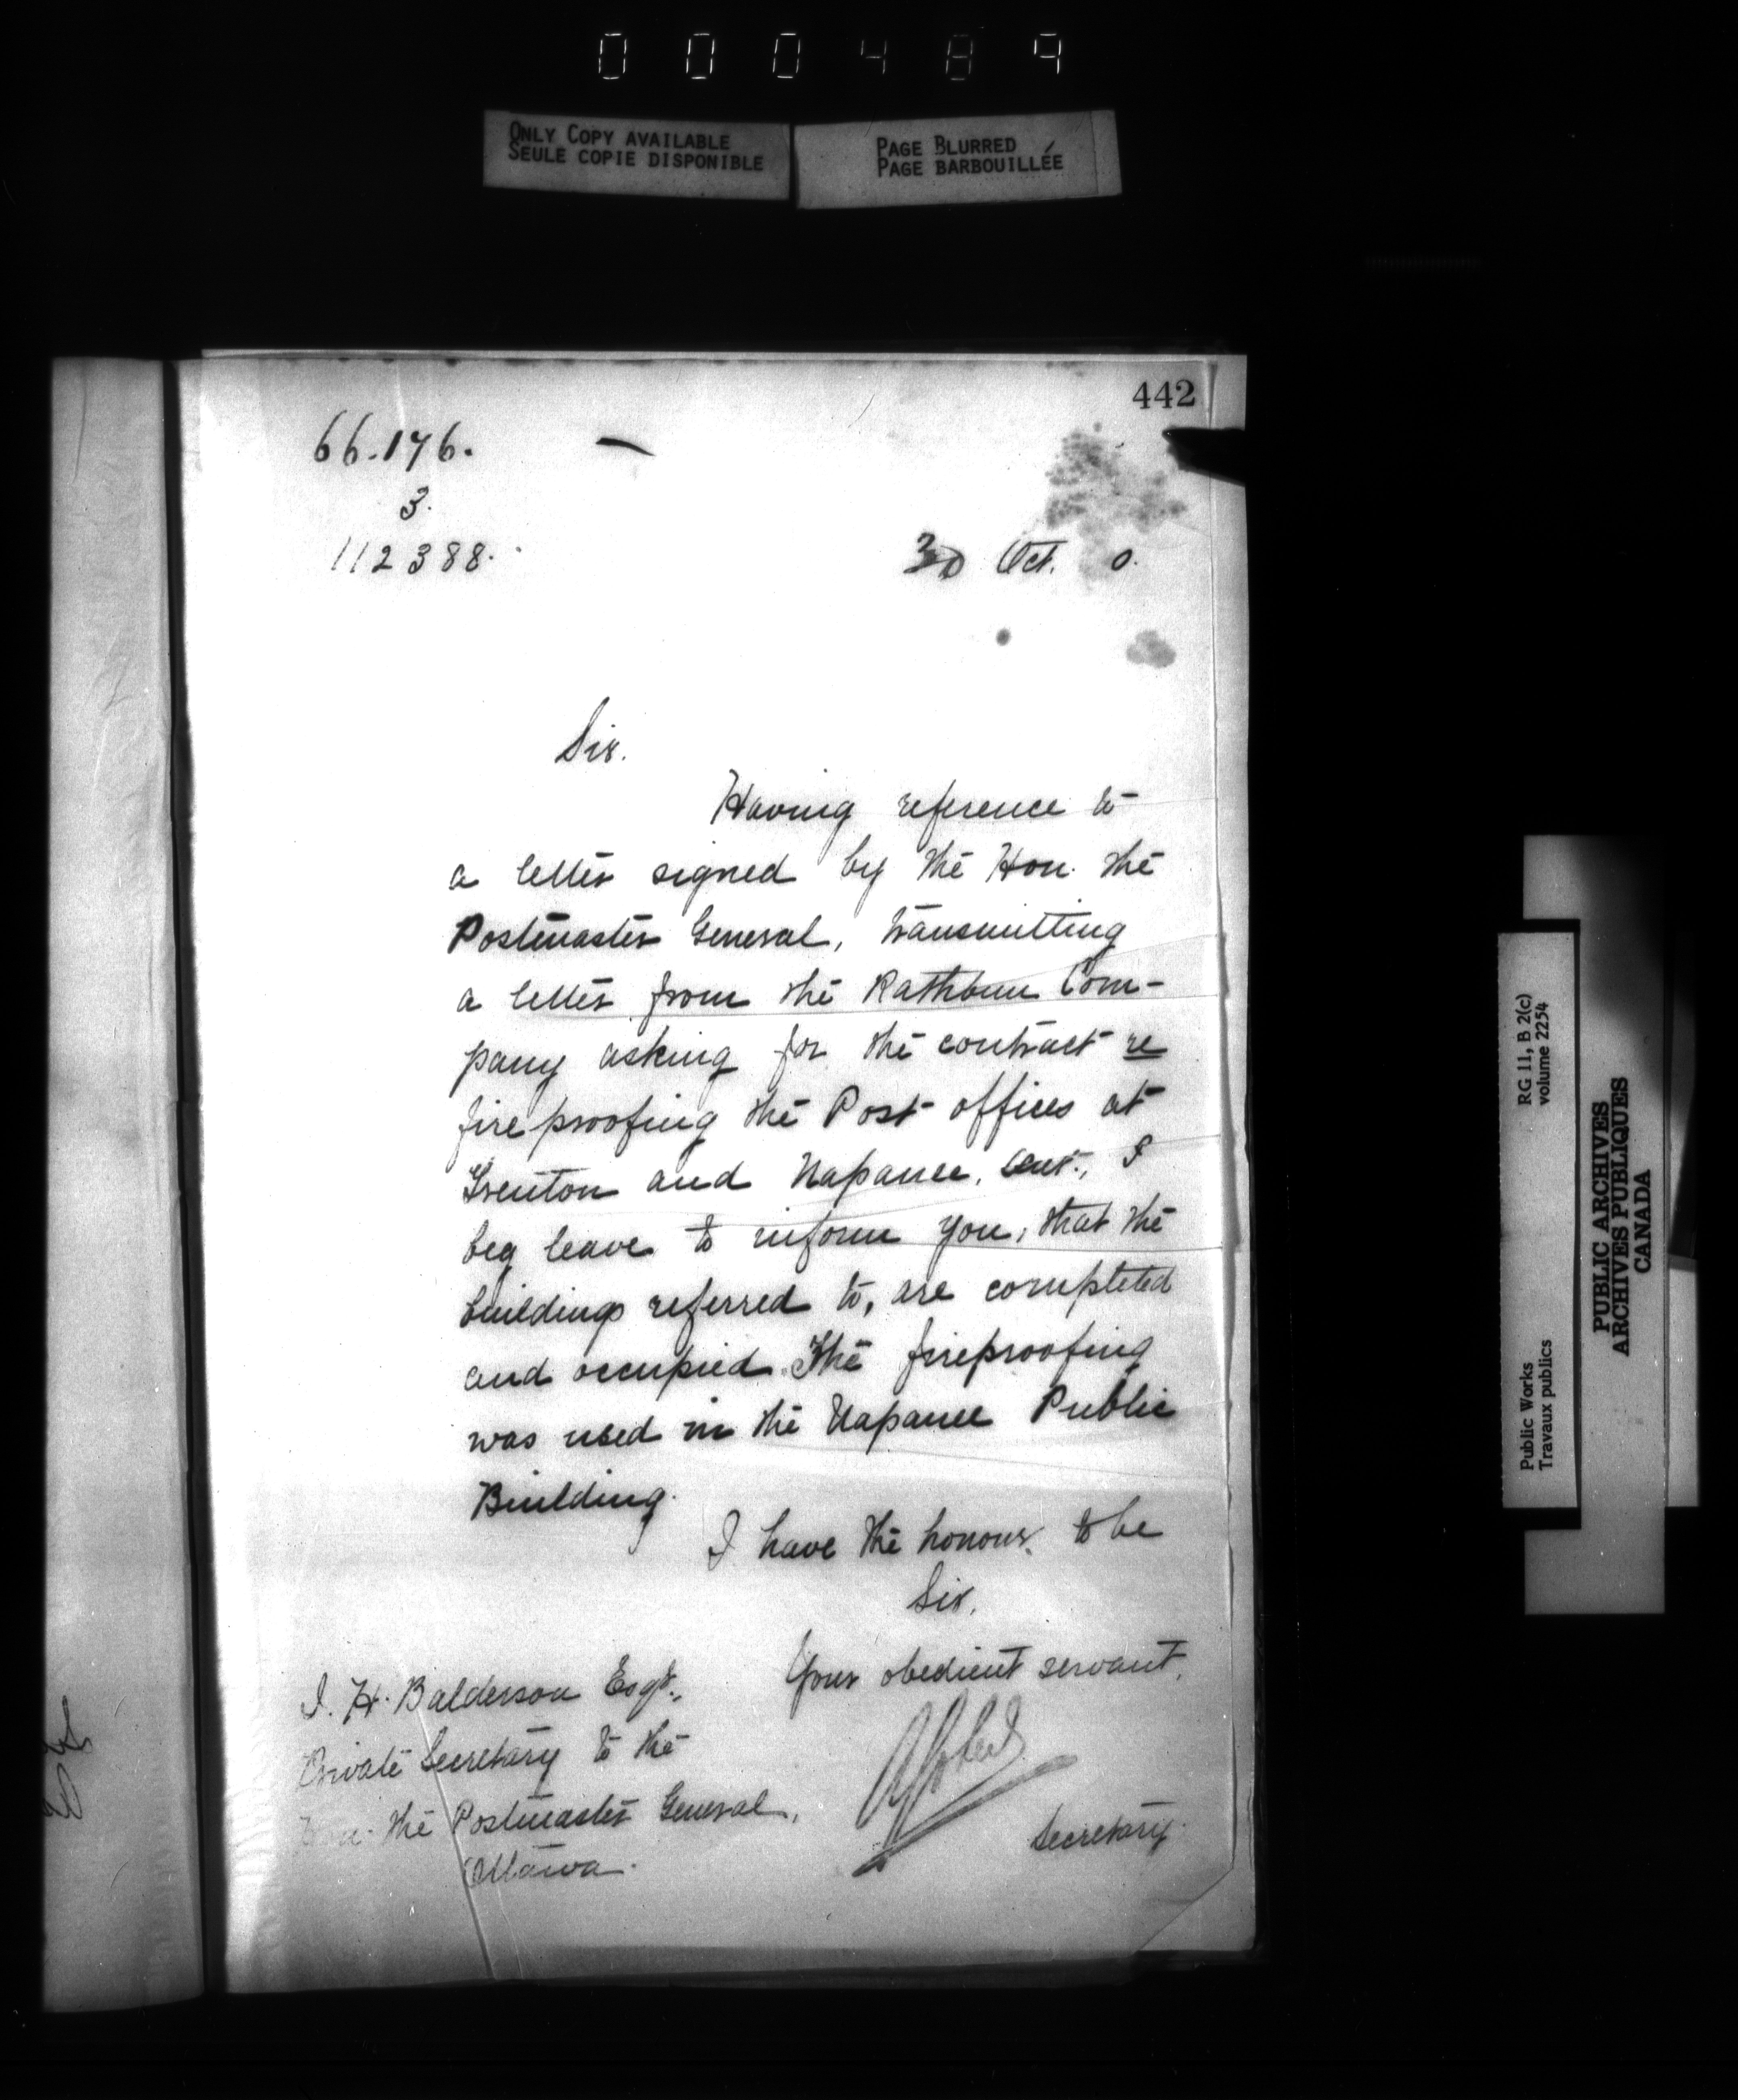 000489
ONLY COPY AVAILABLE
SEULE COPIE DISPONIBLE
PAGE BLURRED
PAGE BARBOUILLÉE
442
66.176.
3.
112388.
30 Oct. 0.
Sir.
Having reference to
a letter signed by the Hon. the
Postmaster General, transmitting
a letter from the Rathbun Com-
pany asking for the contract re
fireproofing the Post offices at
Trenton and Napanee, Ont., I
beg leave to inform you, that the
buildings referred to, are completed
and occupied. The fireproofing
was used in the Napanee Public
Building.
I have the honour to be
Sir,
Your obedient servant,
Secretary.
J. H. Balderson Esqr.,
Private Secretary to the
Hon. the Postmaster General,
Ottawa.
RG 11, B 2(c)
volume 2254
Public Works
Travaux publics
PUBLIC ARCHIVES
ARCHIVES PUBLIQUES
CANADA